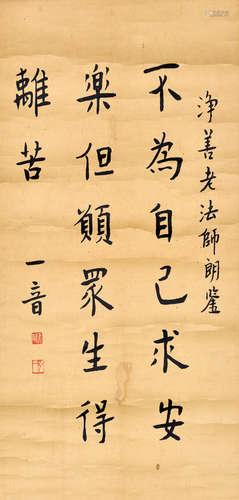 淨善老法師朗鉴
不為自己求安
樂但願眾生得
離苦
一音